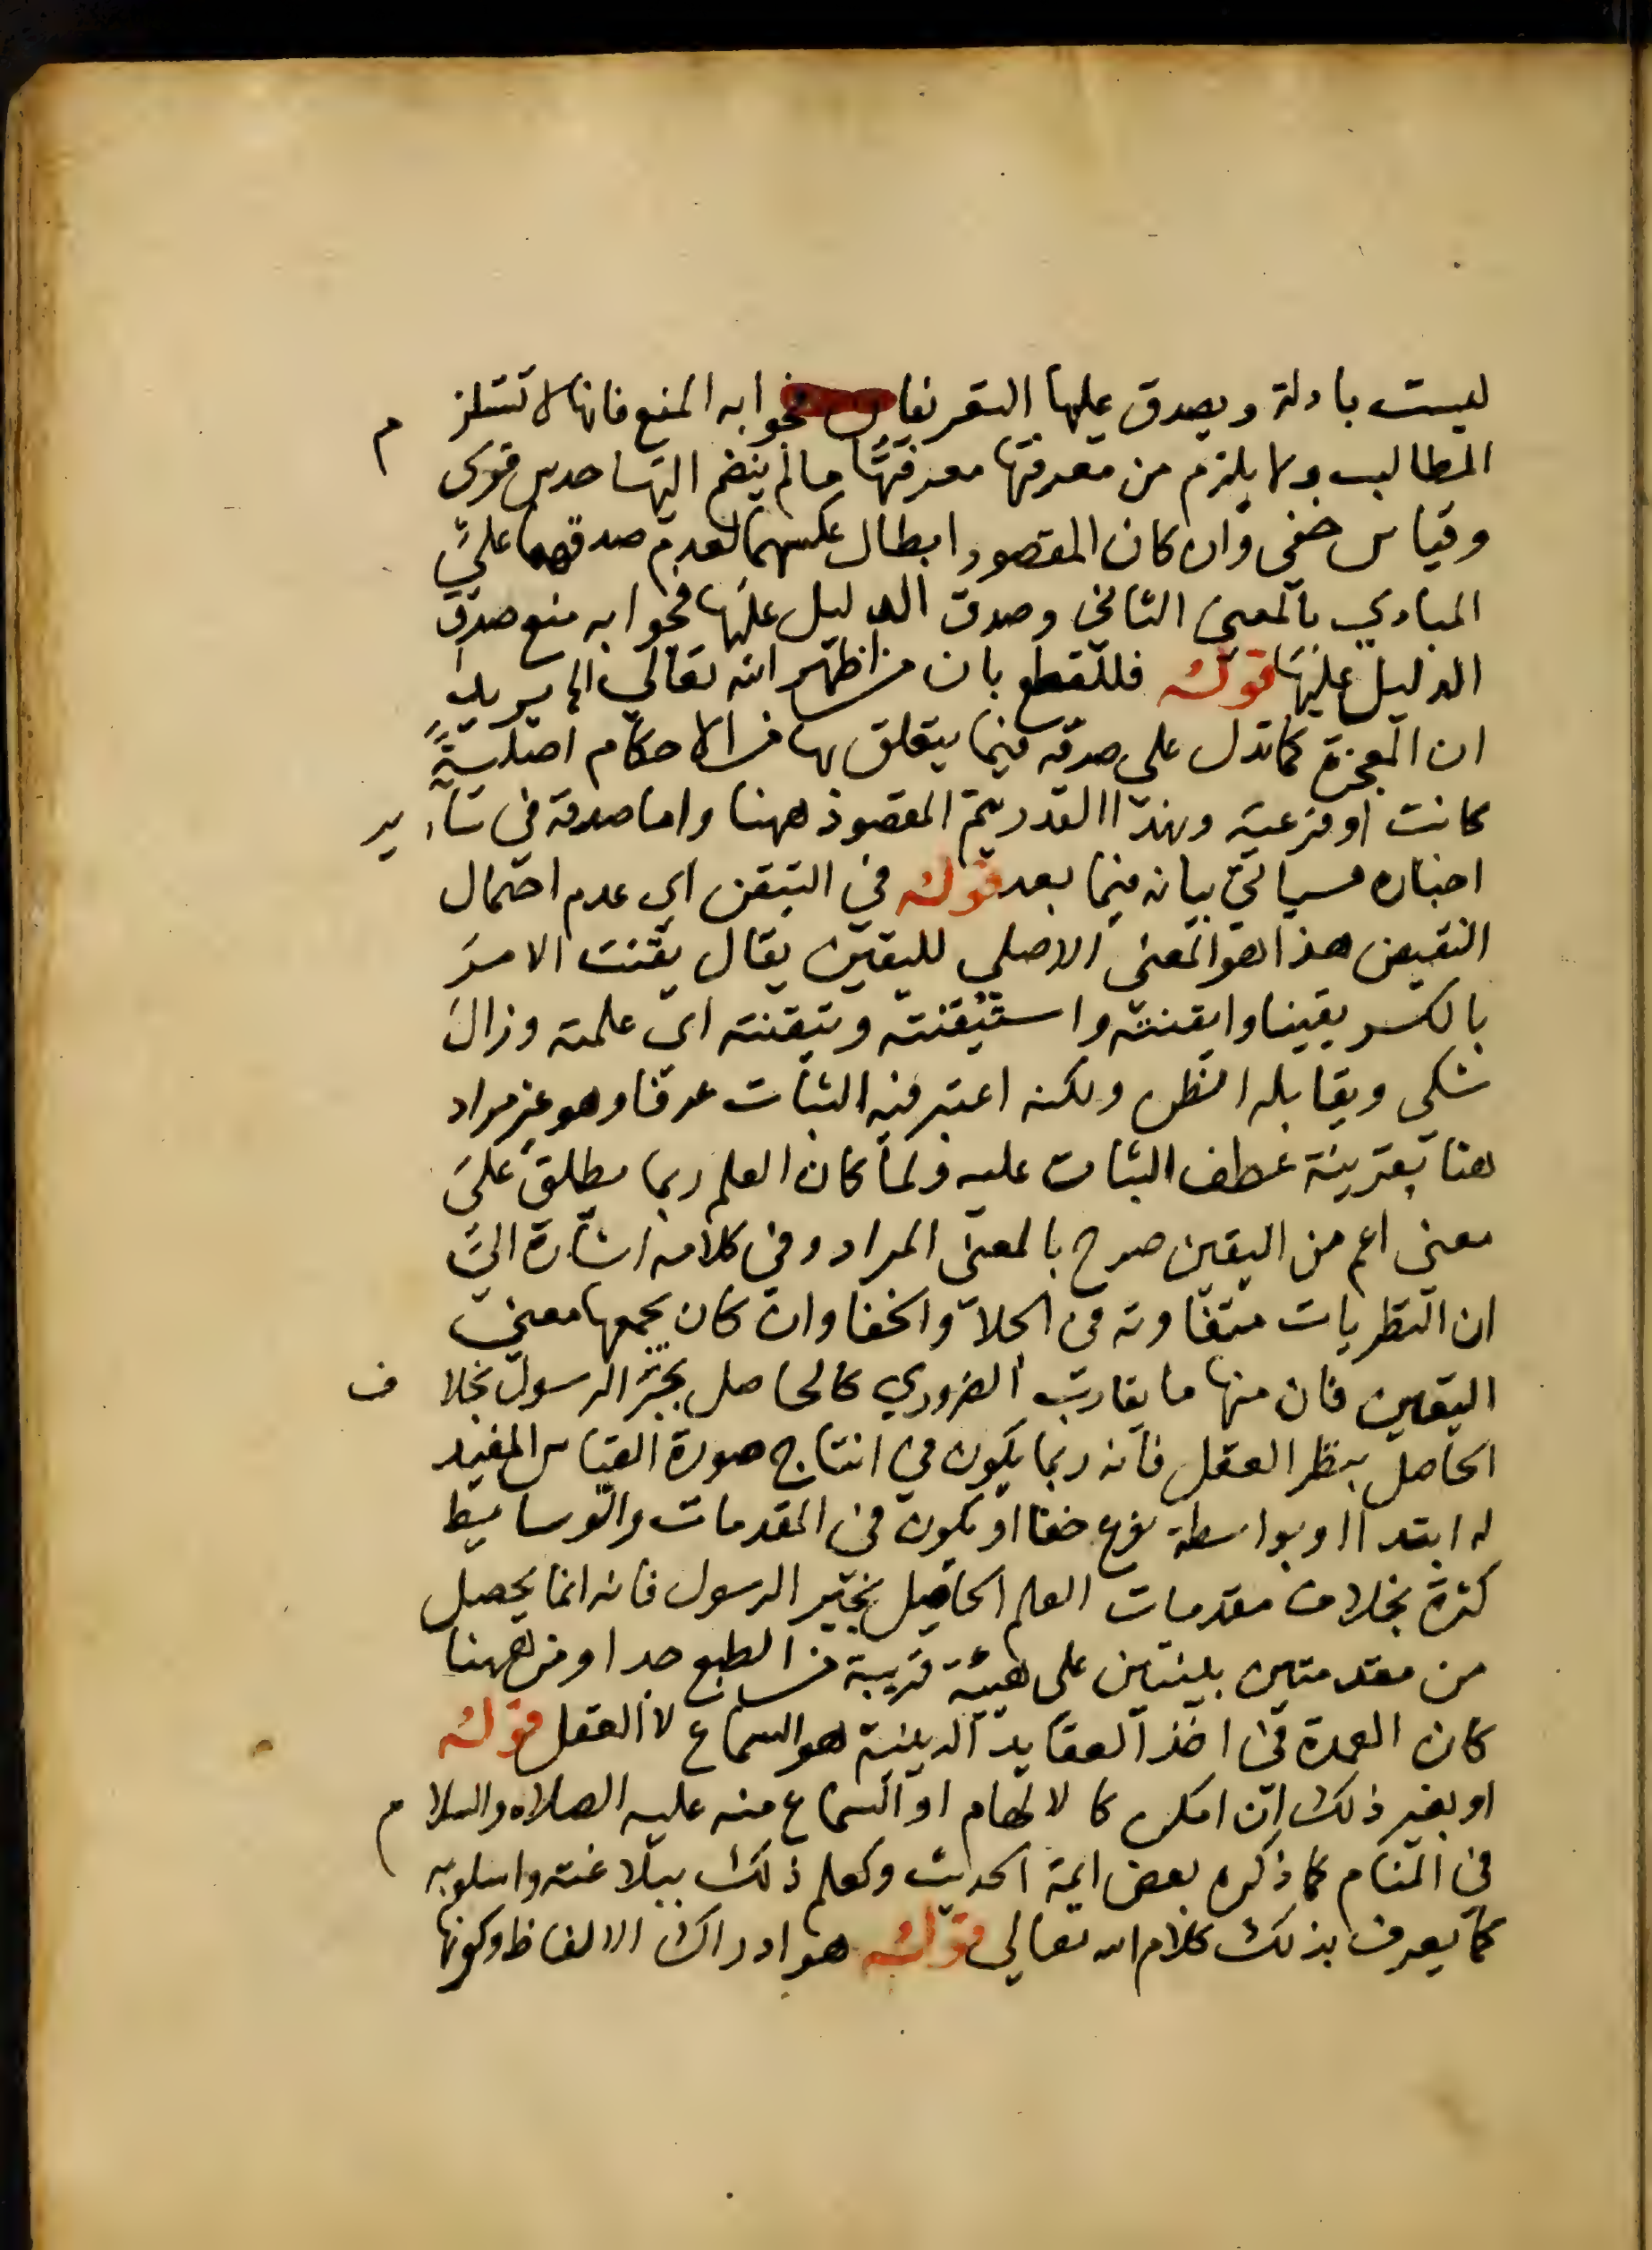 ليست بادلة ويصدق عليها التعريفا فجوابه المنع فانها لا تستلز م
المطالب ولا يلزم من معرفتها معرفتها ما لم ينضم اليها حدس قوى
وقياس خفي وان كان المقصود ابطال عكسهما لعدم صدقهما على
المبادي بالمعنى الثاني وصدق الدليل عليها فجوابه منع صدق
الدليل عليها قوله فللقطع بان من اظهر الله تعالي الي يريد
ان المعجزة كما تدل على صدقه فيما يتعلق بها من الاحكام اصلية
كانت او فرعية وبهذا القدر يتم المقصود ههنا واما صدقه في سا ير
اخباره فسياتي بيانه فيما بعد قوله في التيقن اي عدم احتمال
النقيض هذا هو المعنى الاصلي لليقين يقال يقنت الامر
بالكسر يقينا وايقنته واستيقنته وتيقنته اى علمته وزال
شكي ويقابله الظن ولكنه اعتبر فيه الثبات عرفا وهو غير مراد
هنا بقرينة عطف الثبات عليه ولما كان العلم ربما يطلق على
معنى اعم من اليقين صرح بالمعنى المراد وفي كلامه اشارة الى
ان النظريات متفاوته في الجلا والخفا وان كان يجمعها معنى
اليقين فان منها ما يقارب الضروري كالحاصل بخبر الرسول بخلا ف
الحاصل بنظر العقل فانه ربما يكون في انتاج صورة القياس المفيد
له ابتدا او بواسطة نوع خفا او يكون في المقدمات والوسايط
كثرة بخلاف مقدمات العلم الحاصل بخبر الرسول فانه انما يحصل
من مقدمتين بينتين على هيئة قريبة من الطبع جدا ومن ههنا
كان العمدة في اخذ العقايد الدينية هو السماع لا العقل قوله
او بغير ذلك ان امكن كالالهام او السماع منه عليه الصلاه والسلا م
في المنام كما ذكره بعض ايمة الحديث وكعلم ذلك ببلاغته واسلوبه
كما يعرف بذلك كلام الله تعالي قوله هو ادراك الالفاظ وكونها